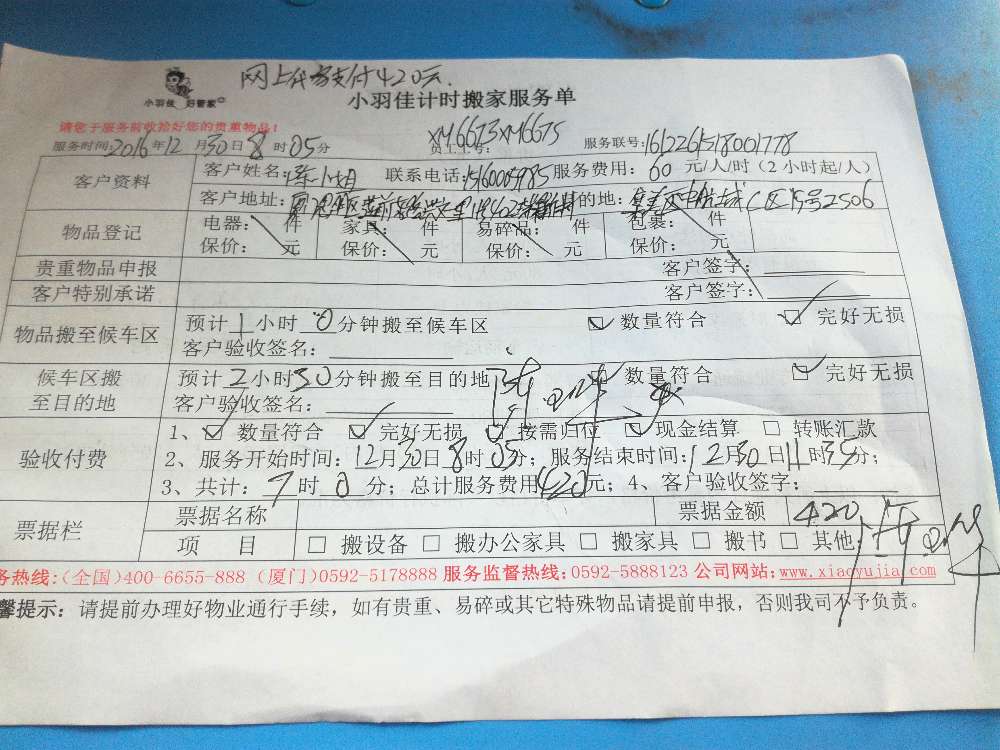 网上代为支付420元.
小羽佳 好管家
小羽佳计时搬家服务单
请您于服务前收拾好您的贵重物品!
服务时间:2016年12月30日8时05分 员工工号: XM6673XM6675 服务联号:1612261518001778
客户资料 客户姓名: 小姐 联系电话:15160005985 服务费用:60元/人/时(2小时起/人)
客户地址: 目的地: C区 号2506
物品登记 电器: 件 家具: 件 易碎品: 件 包裹: 件
保价: 元 保价: 元 保价: 元 保价: 元
贵重物品申报 客户签字:
客户特别承诺 客户签字:
物品搬至候车区 预计1小时0分钟搬至候车区 ☑ 数量符合 ☑ 完好无损
客户验收签名:
候车区搬至目的地 预计2小时30分钟搬至目的地 数量符合 ☑ 完好无损
客户验收签名:
验收付费 1、☑ 数量符合 ☑ 完好无损 ☑ 按需归位 ☑ 现金结算 □ 转账汇款
2、服务开始时间:12月30日8时05分;服务结束时间:12月30日11时35分;
3、共计:7时0分;总计服务费用420元;4、客户验收签字:
票据栏 票据名称 票据金额 420
项 目 □ 搬设备 □ 搬办公家具 □ 搬家具 □ 搬书 □ 其他
务热线:(全国)400-6655-888 (厦门)0592-5178888 服务监督热线:0592-5888123 公司网站:www.xiaoyujia.com
馨提示:请提前办理好物业通行手续,如有贵重、易碎或其它特殊物品请提前申报,否则我司不予负责。